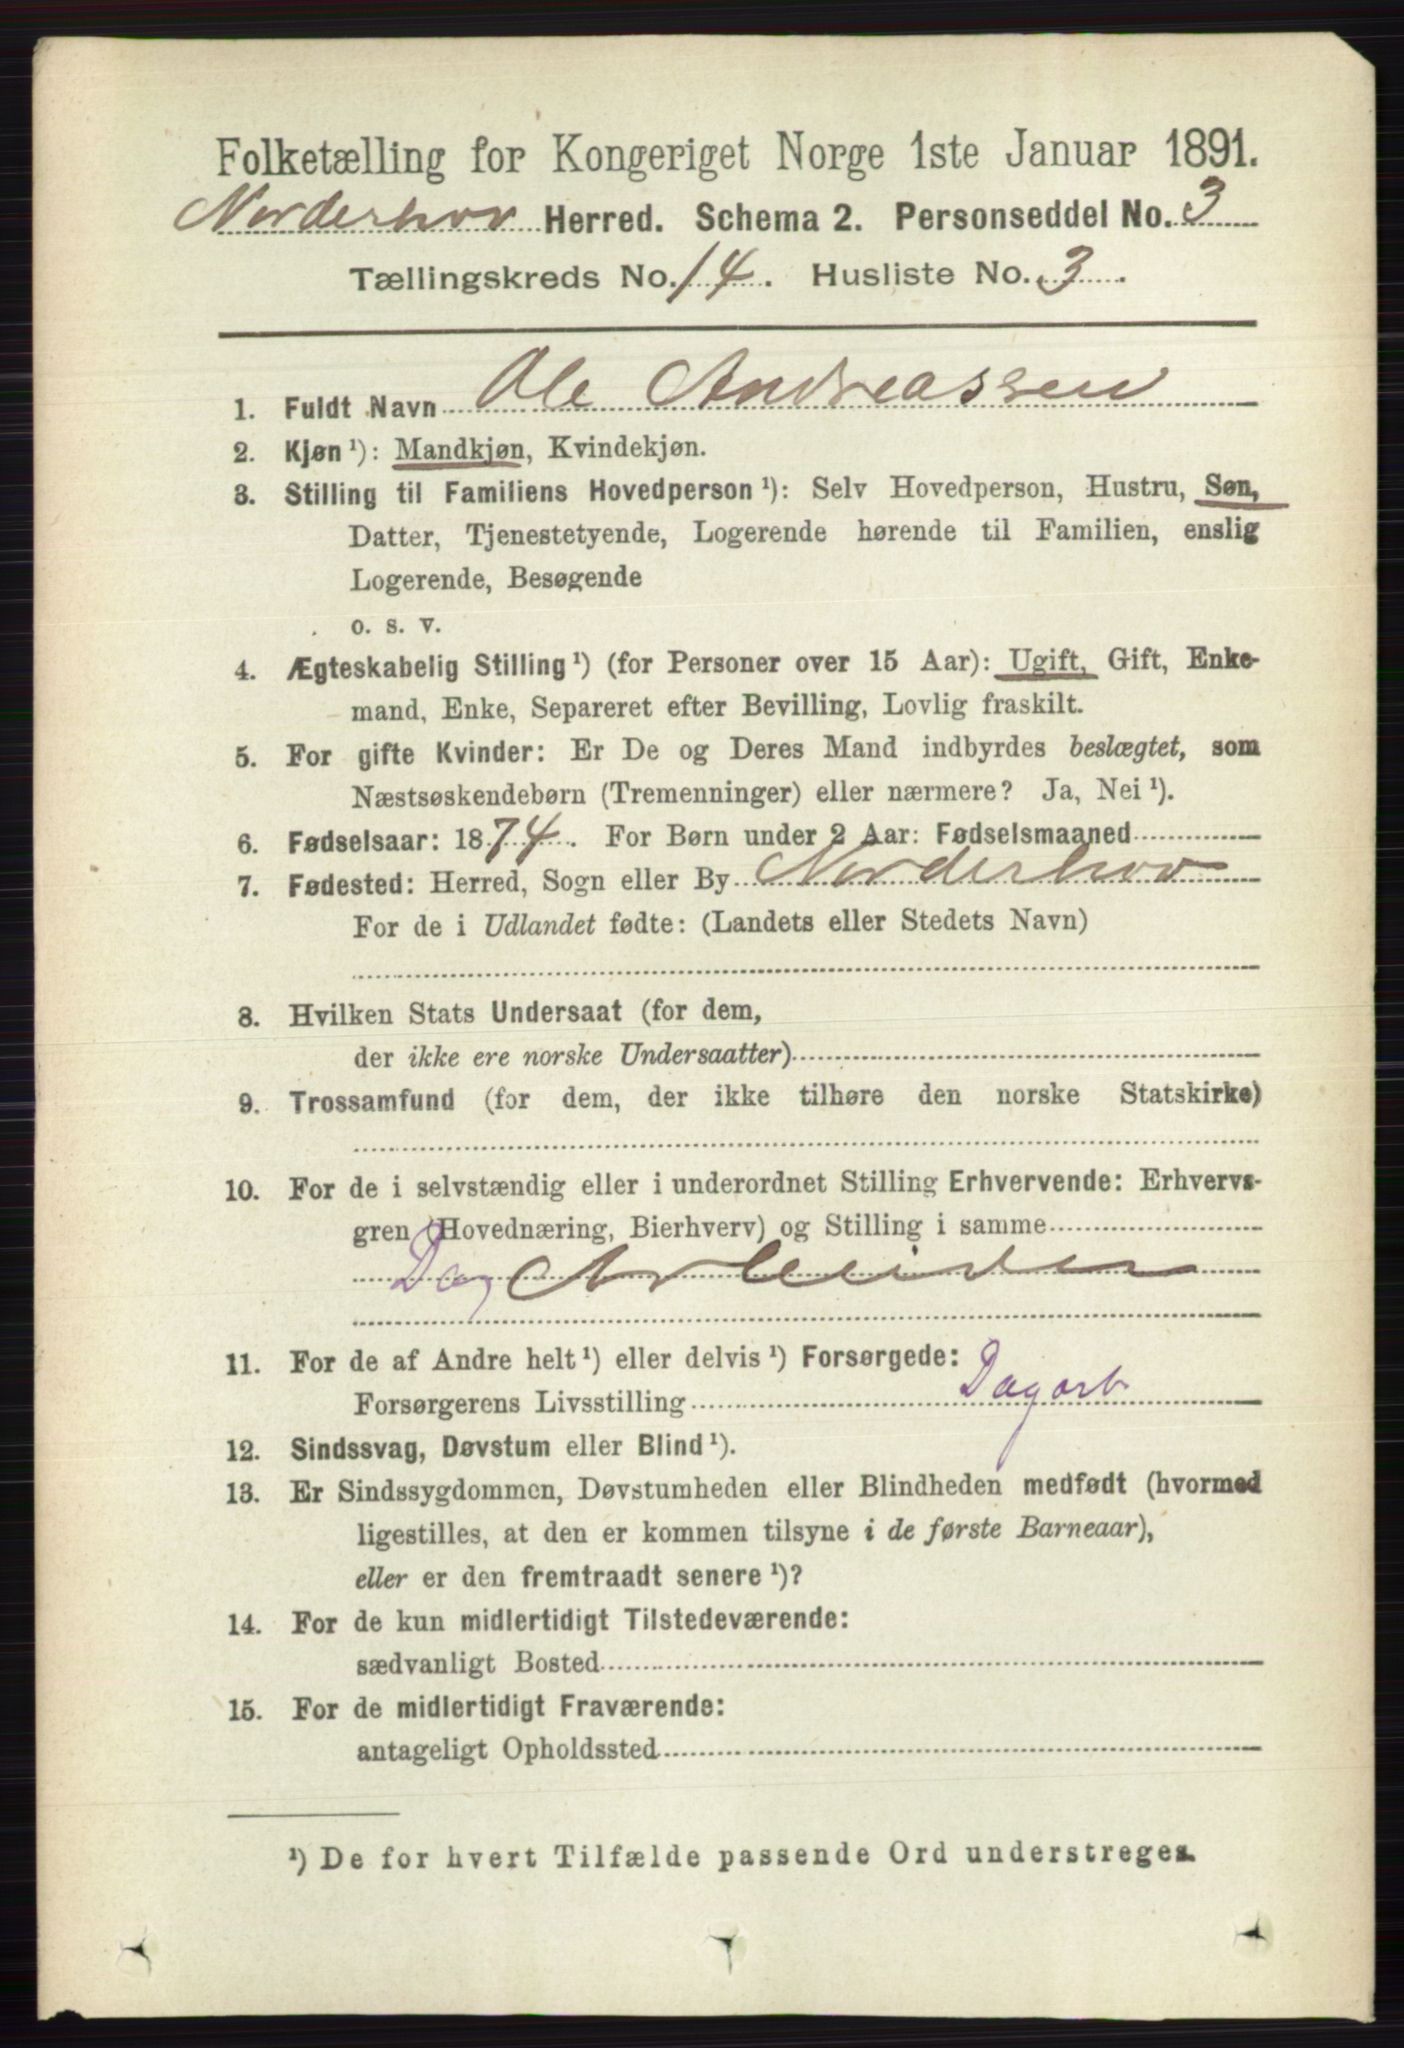 Folketælling for Kongeriget Norge 1ste Januar 1891.
Norderhov Herred. Schema 2. Personseddel No. 3
Tællingskreds No. 14. Husliste No. 3.
1. Fuldt Navn Ole Andreassen
2. Kjøn¹): Mandkjøn, Kvindekjøn.
3. Stilling til Familiens Hovedperson¹): Selv Hovedperson, Hustru, Søn,
Datter, Tjenestetyende, Logerende hørende til Familien, enslig
Logerende, Besøgende
o. s. v.
4. Ægteskabelig Stilling¹) (for Personer over 15 Aar): Ugift, Gift, Enke-
mand, Enke, Separeret efter Bevilling, Lovlig fraskilt.
5. For gifte Kvinder: Er De og Deres Mand indbyrdes beslægtet, som
Næstsøskendebørn (Tremenninger) eller nærmere? Ja, Nei¹).
6. Fødselsaar: 1874. For Børn under 2 Aar: Fødselsmaaned
7. Fødested: Herred, Sogn eller By Norderhov
For de i Udlandet fødte: (Landets eller Stedets Navn)
8. Hvilken Stats Undersaat (for dem,
der ikke ere norske Undersaatter)
9. Trossamfund (for dem, der ikke tilhøre den norske Statskirke)
10. For de i selvstændig eller i underordnet Stilling Erhvervende: Erhvervs-
gren (Hovednæring, Bierhverv) og Stilling i samme
Dag Arbeider
11. For de af Andre helt¹) eller delvis¹) Forsørgede:
Forsørgerens Livsstilling Dagarb
12. Sindssvag, Døvstum eller Blind¹).
13. Er Sindssygdommen, Døvstumheden eller Blindheden medfødt (hvormed
ligestilles, at den er kommen tilsyne i de første Barneaar),
eller er den fremtraadt senere¹)?
14. For de kun midlertidigt Tilstedeværende:
sædvanligt Bosted
15. For de midlertidigt Fraværende:
antageligt Opholdssted
¹) De for hvert Tilfælde passende Ord understreges.